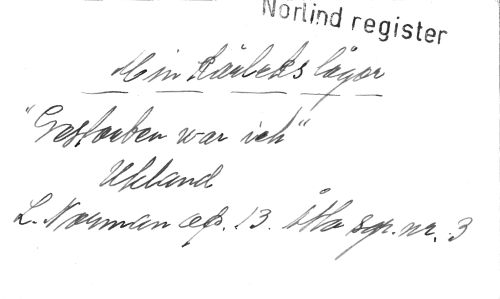 Norlind register
Min kärleks lågor
"Gestorben war ich"
Uhland
L. Norman op. 13. åtta sgr. nr. 3